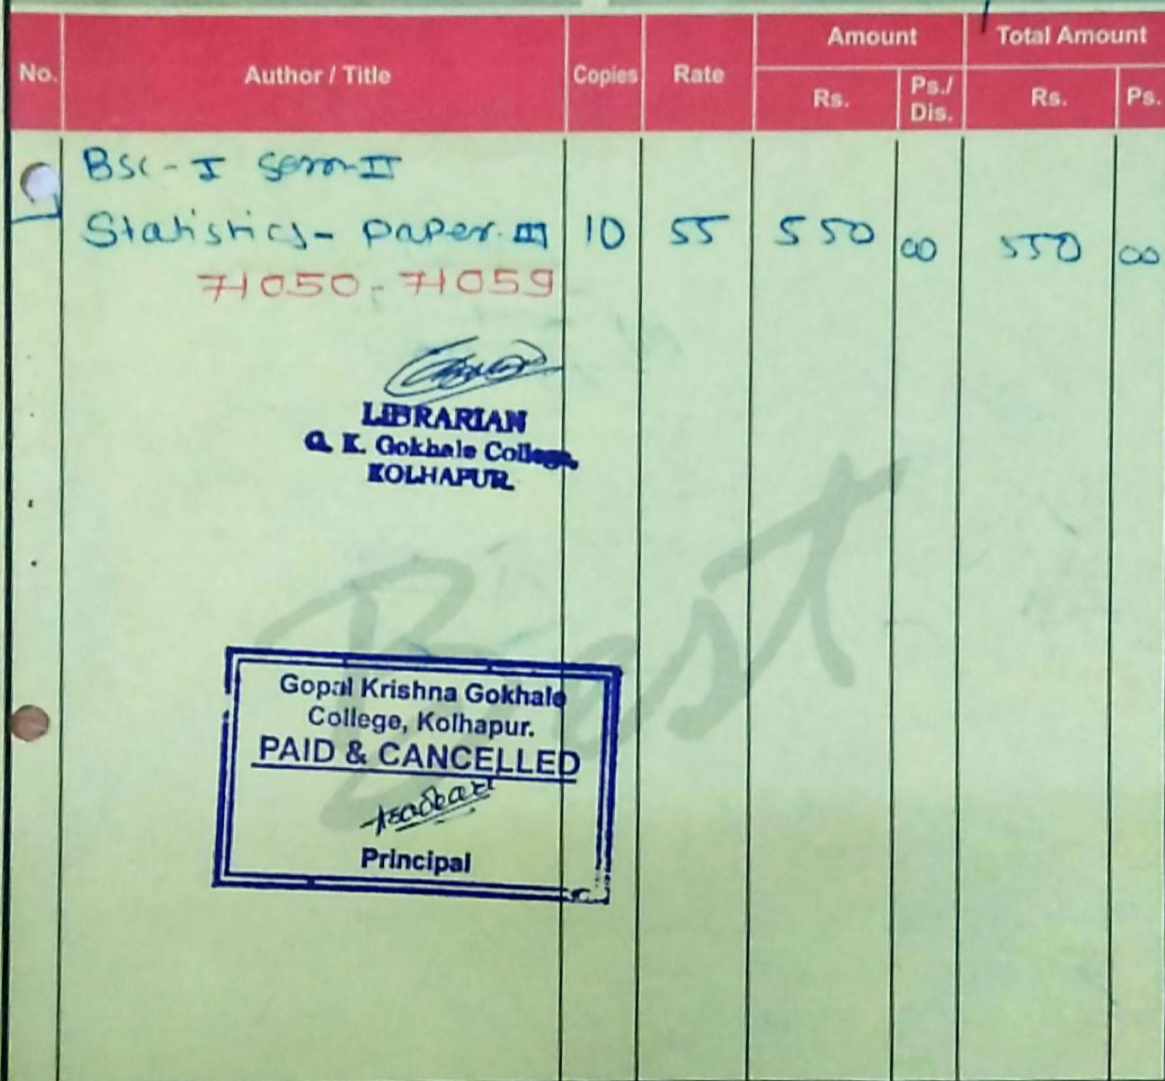 No. Author / Title Copies Rate Amount Total Amount
Rs. Ps./ Dis. Rs. Ps.
BSC-I Sem-II
Statistics- paper. III 10 55 550 00 550 00
71050-71059
LIBRARIAN
G. K. Gokhale College,
KOLHAPUR.
Best
Gopal Krishna Gokhale
College, Kolhapur.
PAID & CANCELLED
Principal